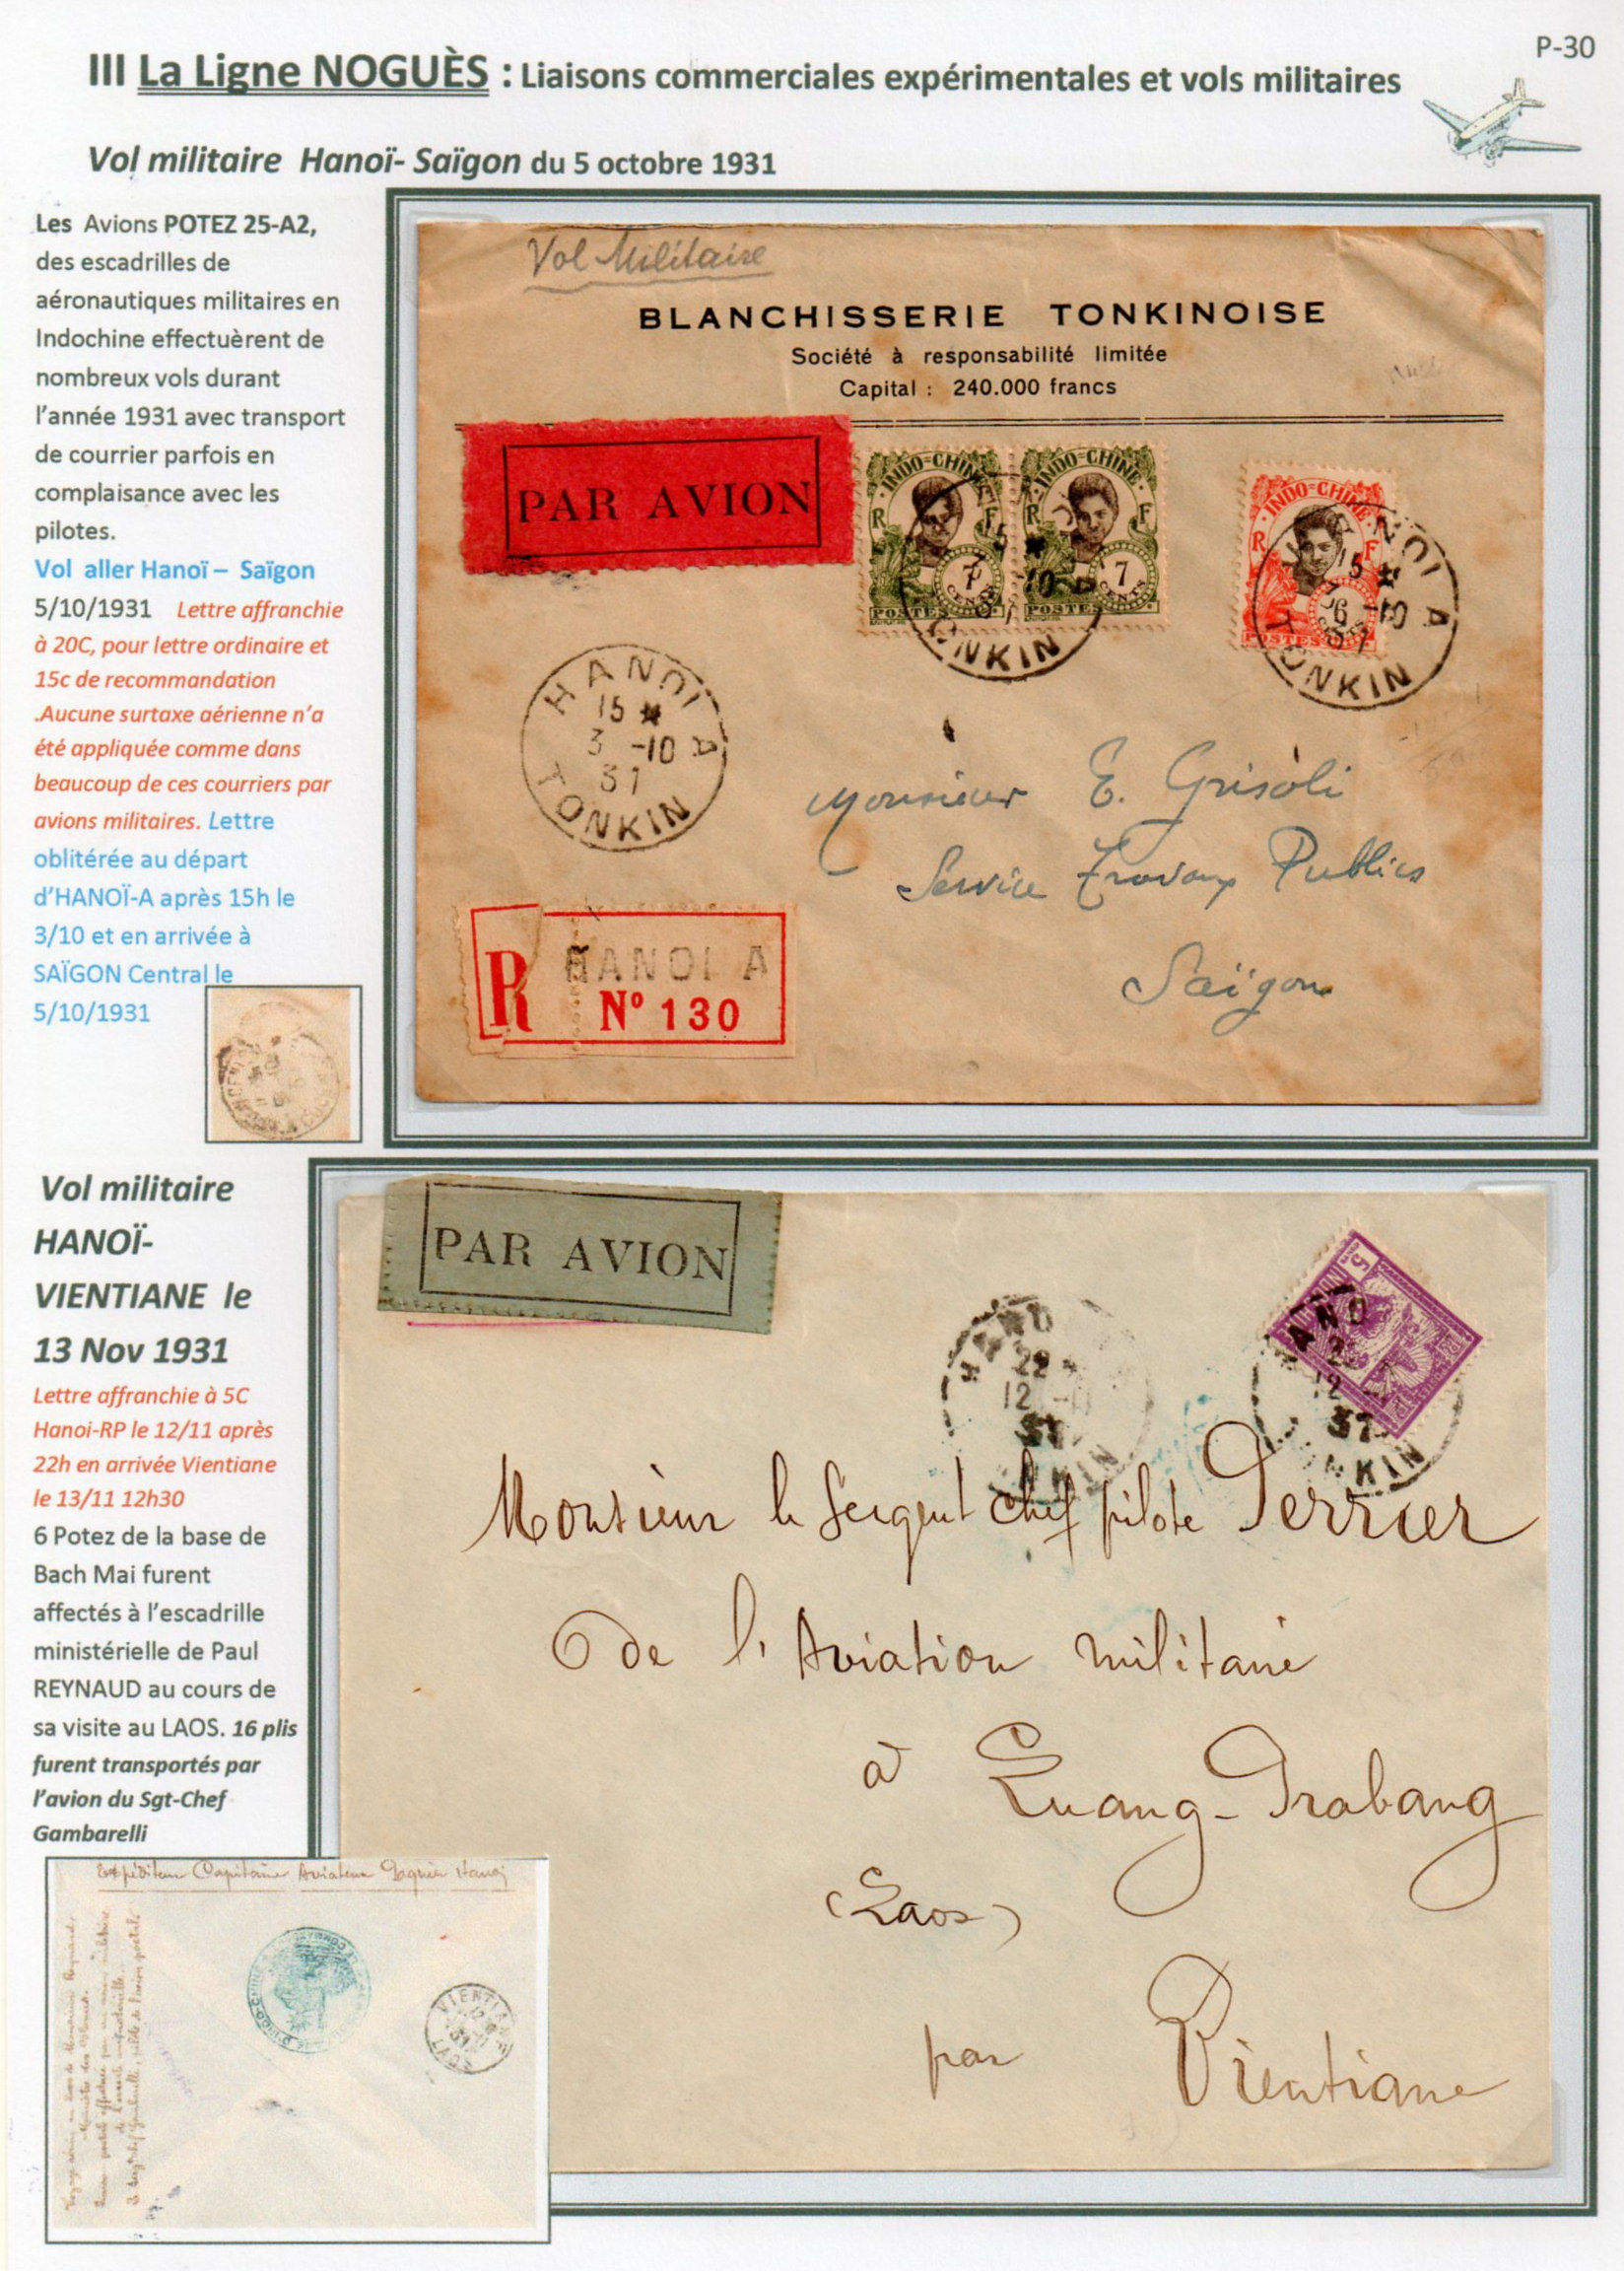 P-30
III La Ligne NOGUÈS : Liaisons commerciales expérimentales et vols militaires
Vol militaire Hanoï- Saïgon du 5 octobre 1931
Les Avions POTEZ 25-A2,
des escadrilles de
aéronautiques militaires en
Indochine effectuèrent de
nombreux vols durant
l'année 1931 avec transport
de courrier parfois en
complaisance avec les
pilotes.
Vol aller Hanoï – Saïgon
5/10/1931 Lettre affranchie
à 20C, pour lettre ordinaire et
15c de recommandation
.Aucune surtaxe aérienne n'a
été appliquée comme dans
beaucoup de ces courriers par
avions militaires. Lettre
oblitérée au départ
d'HANOÏ-A après 15h le
3/10 et en arrivée à
SAÏGON Central le
5/10/1931
Vol Militaire
BLANCHISSERIE TONKINOISE
Société à responsabilité limitée
Capital : 240.000 francs
PAR AVION
INDO-CHINE
R F
7
CENTS
POSTES
INDO-CHINE
R F
7
CENTS
POSTES
INDO-CHINE
R F
6
CENTS
POSTES
HANOI A
15
3 -10
31
TONKIN
Monsieur E. Grisoli
Service Travaux Publics
Saïgon
R HANOI A
Nº 130
Vol militaire
HANOÏ-
VIENTIANE le
13 Nov 1931
Lettre affranchie à 5C
Hanoi-RP le 12/11 après
22h en arrivée Vientiane
le 13/11 12h30
6 Potez de la base de
Bach Mai furent
affectés à l'escadrille
ministérielle de Paul
REYNAUD au cours de
sa visite au LAOS. 16 plis
furent transportés par
l'avion du Sgt-Chef
Gambarelli
PAR AVION
22
12
31
Monsieur le Sergent chef pilote Perrier
de l'Aviation militaire
à Luang-Prabang
(Laos)
par Vientiane
Expéditeur Capitaine Aviateur Hanoi
VIENTIANE
LAOS